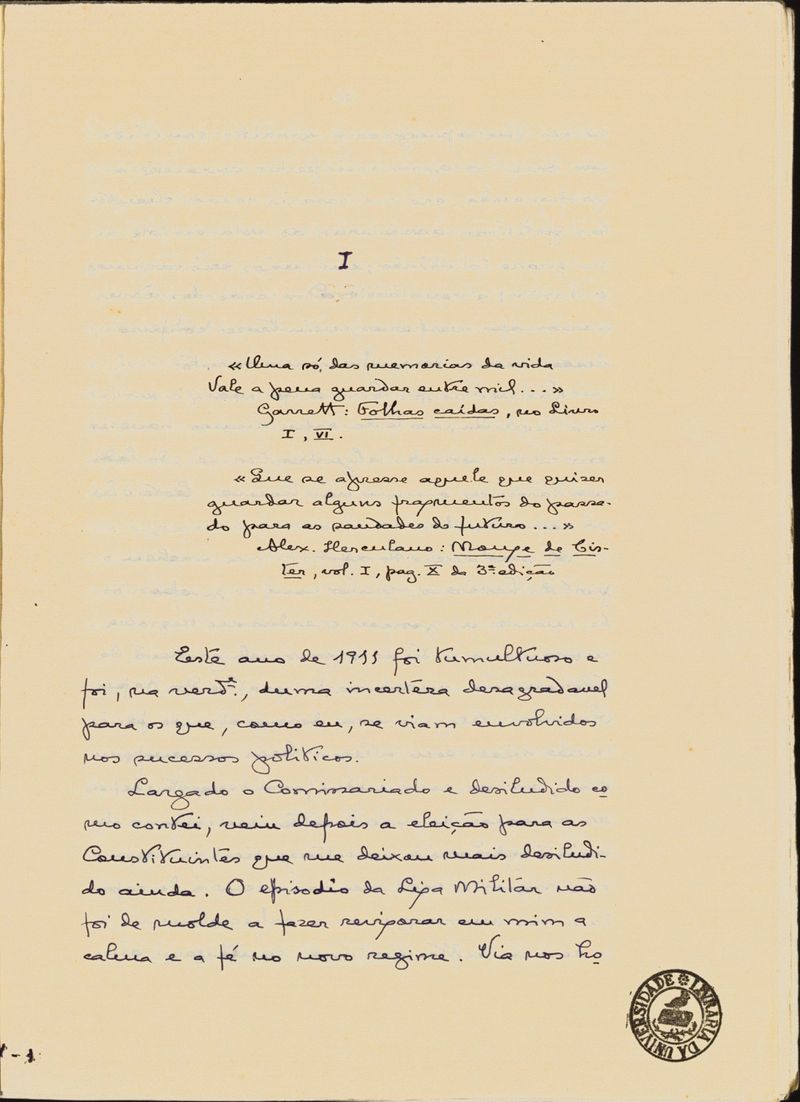 I
«Uma só, das memorias da vida
Vale a pena guardar entre mil...»
Garrett: Folhas caídas, no Livro
I, VI.
«Que se apresse aquele que quizer
guardar alguns fragmentos do passa-
do para as saudades do futuro...»
Alex. Herculano: Monge de Cis-
ter, vol. I, pag. X da 3.ª edição
Este ano de 1911 foi tumultuoso e
foi, na verd.e, duma incerteza desagradavel
para os que, como eu, se viam envolvidos
nos sucessos politicos.
Largado o Comissariado e desiludido co
mo contei, veiu depois a eleição para as
Constituintes que me deixou mais desiludi-
do ainda. O episodio da Liga Militár não
foi de molde a fazer revigorar em mim a
calma e a fé no novo regime. Via nos ho
LIVRARIA DA UNIVERSIDADE
- 1